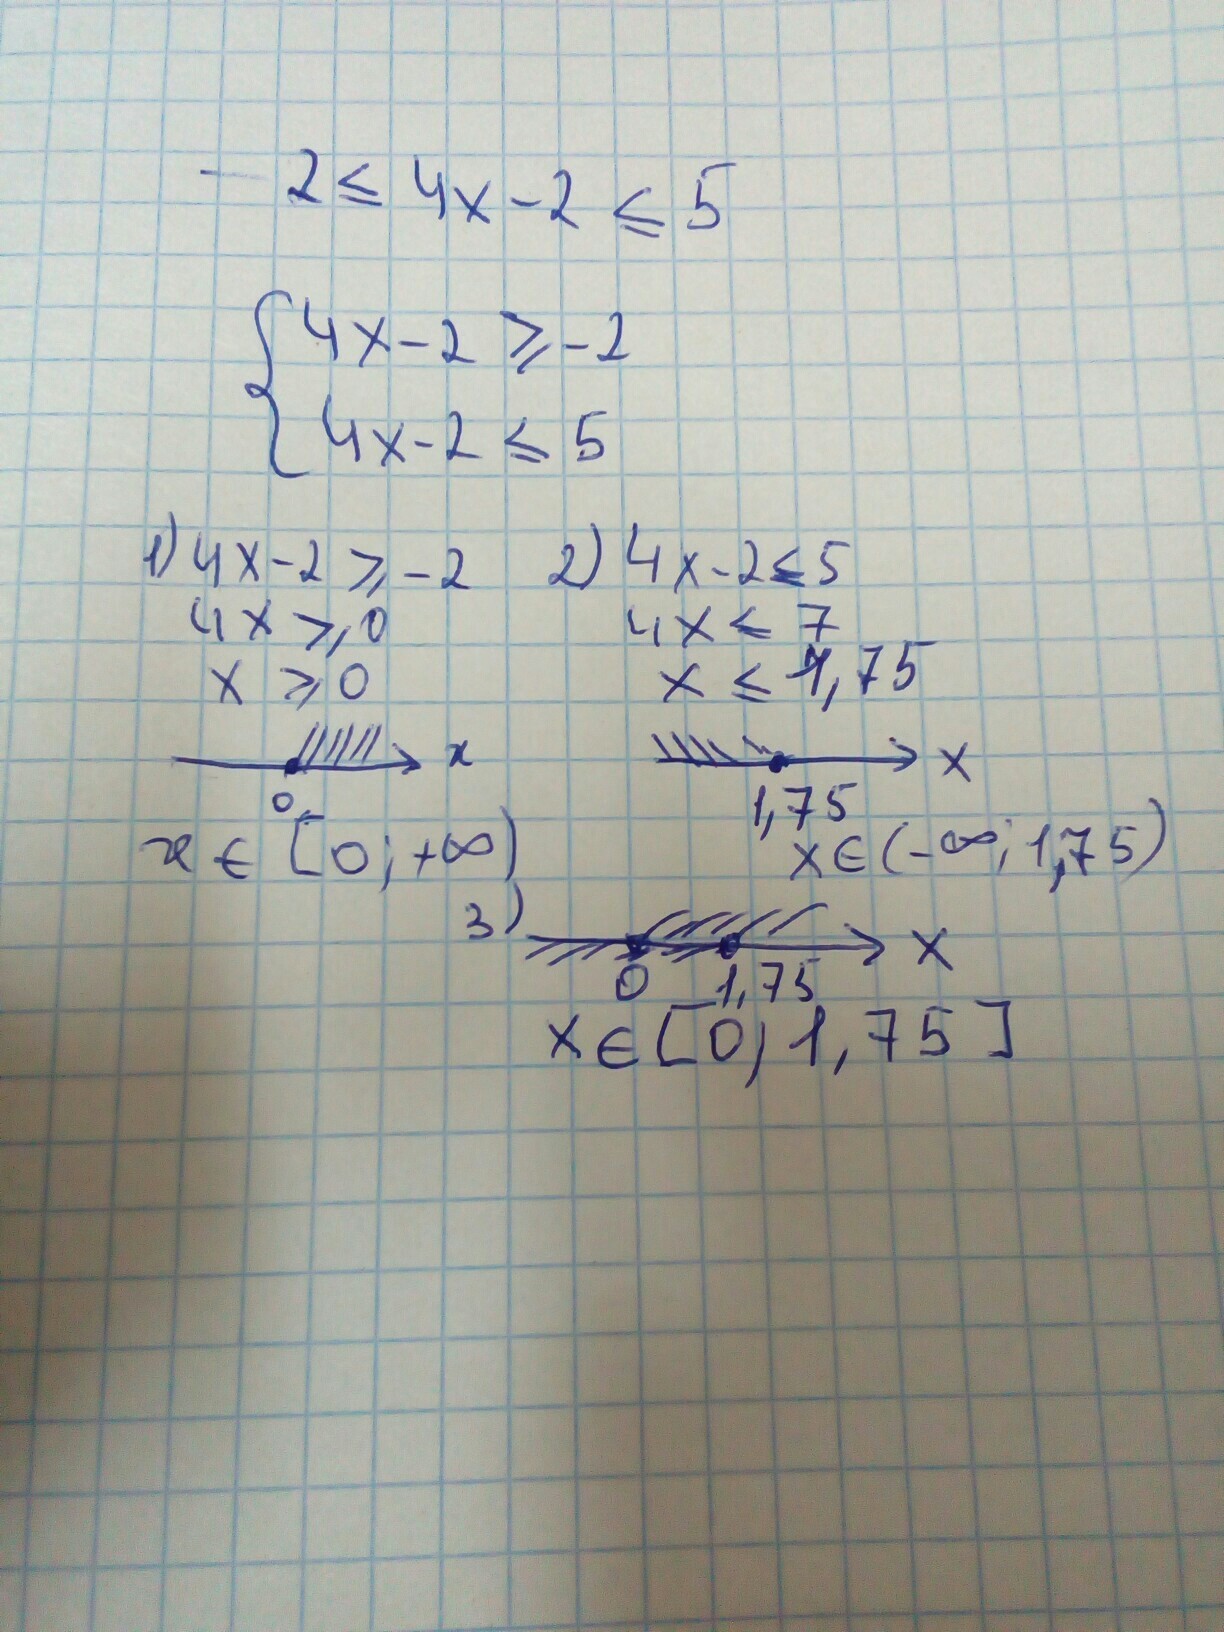 -2 ≤ 4x-2 ≤ 5
{ 4x-2 ≥ -2
4x-2 ≤ 5
1) 4x-2 ≥ -2
4x ≥ 0
x ≥ 0
x
0
x ∈ [0; +∞)
2) 4x-2 ≤ 5
4x ≤ 7
x ≤ 1,75
x
1,75
x ∈ (-∞; 1,75)
3)
x
0 1,75
x ∈ [0; 1,75]